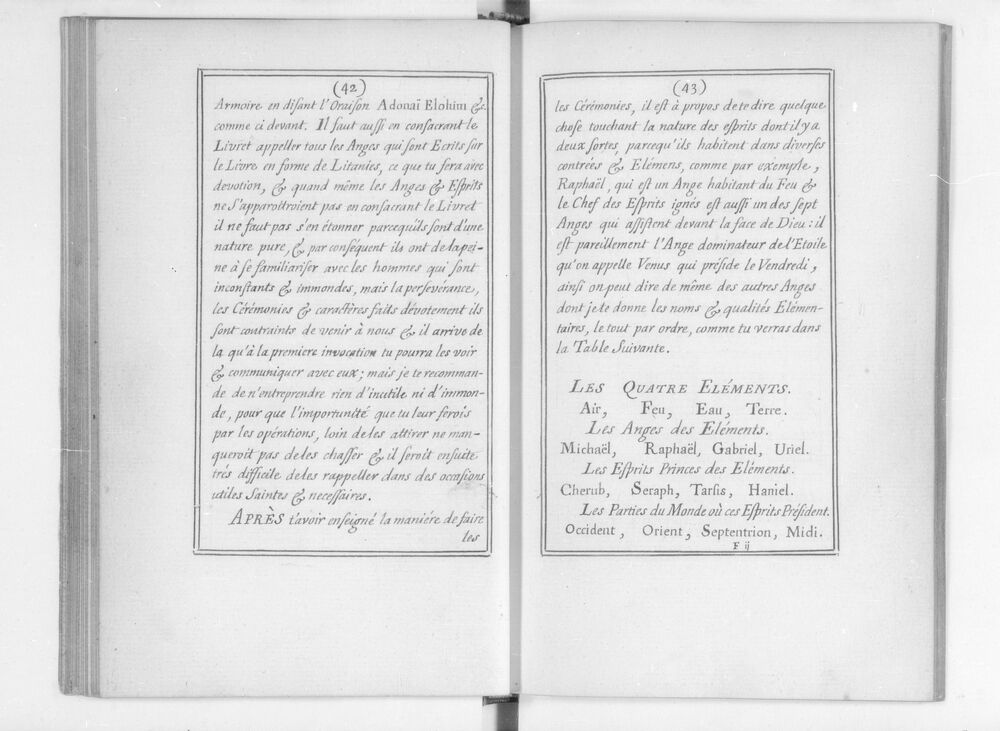 (42)
Armoire en disant l'Oraison Adonaï Elohim &c.
comme ci devant. Il faut aussi en consacrant le
Livret appeller tous les Anges qui sont Ecrits sur
le Livre en forme de Litanies, ce que tu fera avec
devotion, & quand même les Anges & Esprits
ne S'apparoîtroient pas en consacrant le Livret
il ne faut pas s'en étonner parcequ'ils sont d'une
nature pure, & par conséquent ils ont de la pei-
ne à se familiariser avec les hommes qui sont
inconstants & immondes, mais la perseverance,
les Cérémonies & caractères faits dévotement ils
sont contraints de venir à nous & il arrive de
la qu'à la premiere invocation tu pourra les voir
& communiquer avec eux; mais je te recomman-
de de n'entreprendre rien d'inutile ni d'immon-
de, pour que l'importunité que tu leur ferois
par les opérations, loin de les attirer ne man-
queroit pas de les chasser & il seroit ensuite
trés difficile de les rappeller dans des occasions
utiles Saintes & necessaires.
APRÈS t'avoir enseigné la maniére de faire
les
(43)
les Cérémonies, il est à propos de te dire quelque
chose touchant la nature des esprits dont il y a
deux sortes, parcequ'ils habitent dans diverses
contrées & Elémens, comme par exemple,
Raphaël, qui est un Ange habitant du Feu &
le Chef des Esprits ignés est aussi un des sept
Anges qui assistent devant la face de Dieu : il
est pareillement l'Ange dominateur de l'Etoile
qu'on appelle Venus qui préside le Vendredi,
ainsi on peut dire de même des autres Anges
dont je te donne les noms & qualités Elémen-
taires, le tout par ordre, comme tu verras dans
la Table Suivante.
LES QUATRE ELÉMENTS.
Air, Feu, Eau, Terre.
Les Anges des Eléments.
Michaël, Raphaël, Gabriel, Uriel.
Les Esprits Princes des Eléments.
Cherub, Seraph, Tarsis, Haniel.
Les Parties du Monde où ces Esprits Président.
Occident, Orient, Septentrion, Midi.
F ij